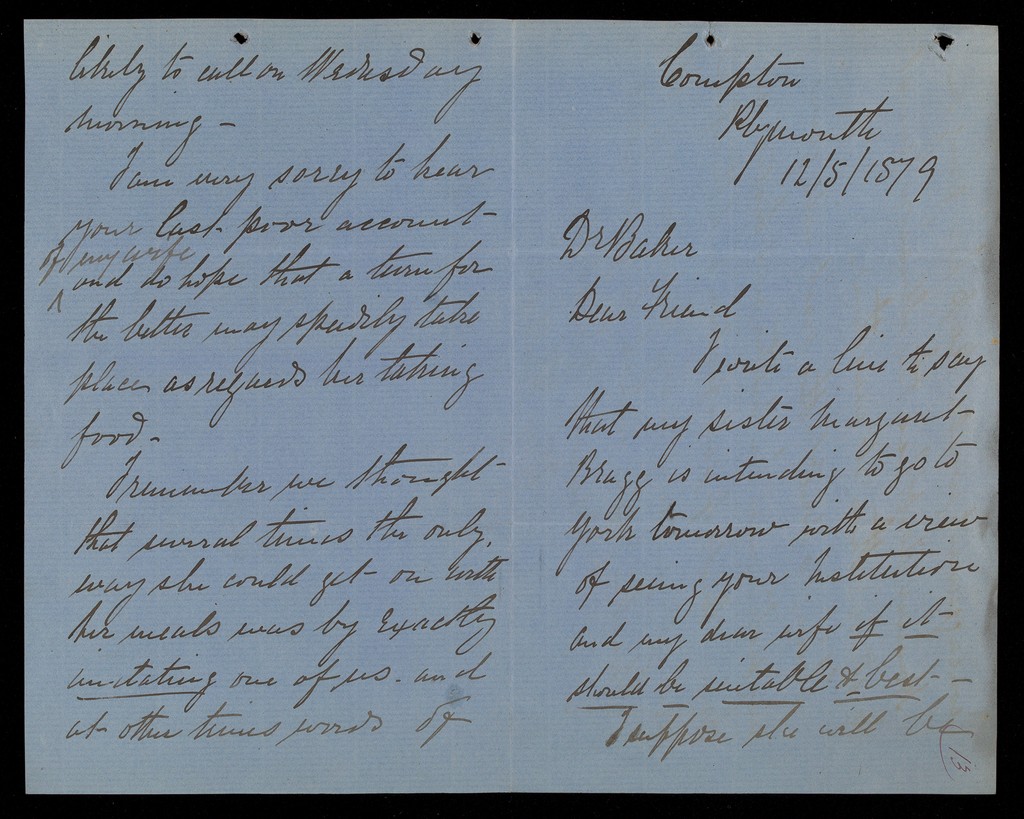 Compton
Plymouth
12/5/1879
Dr Baker
Dear Friend
I write a line to say
that my sister Margaret
Bragg is intending to go to
York tomorrow with a view
of seeing your Institution
and my dear wife if it
should be suitable & best -
I suppose she will be
13
likely to call on Wednesday
morning -
I am very sorry to hear
your last poor account
of my wife
and do hope that a turn for
the better may speedily take
place as regards her taking
food -
I remember we thought
that several times the only
way she could get on with
her meals was by exactly
imitating one of us. and
at other times words of